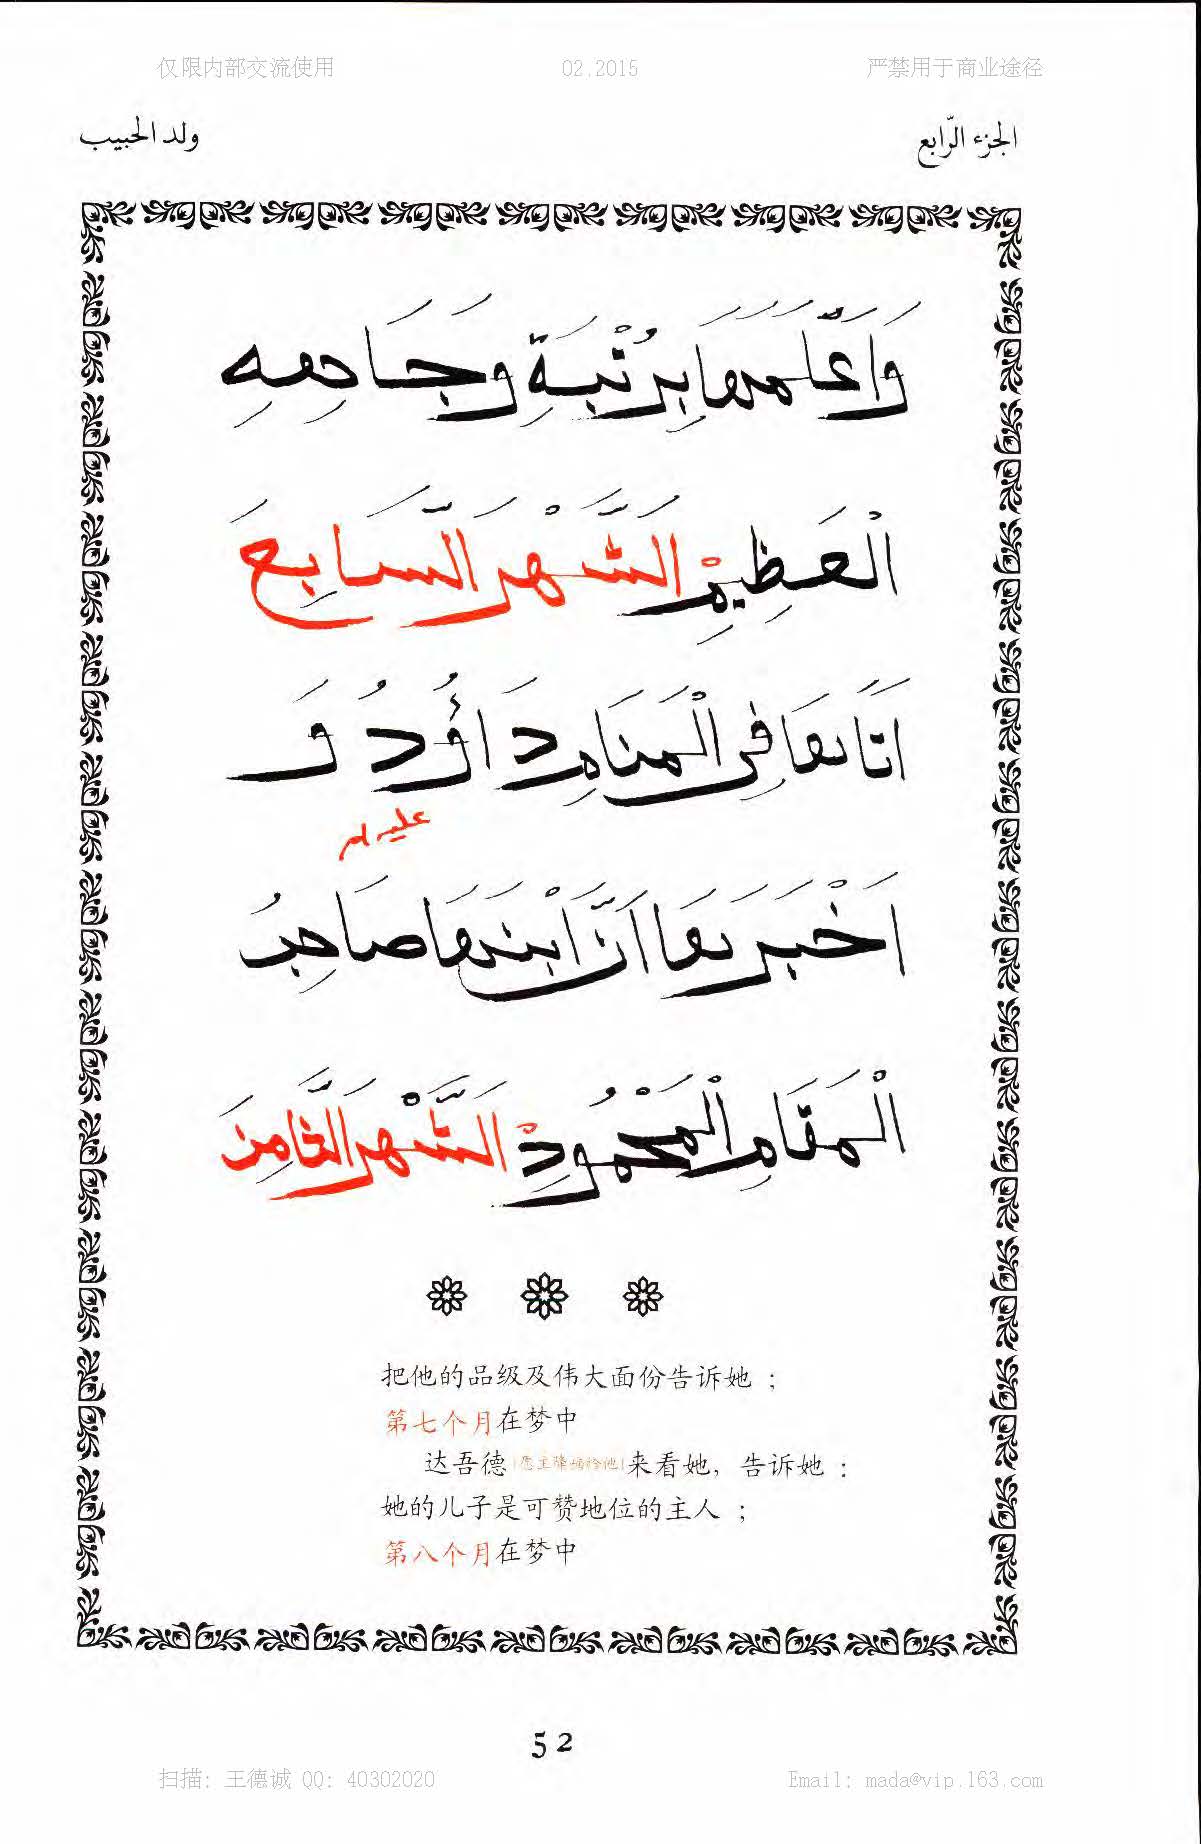 仅限内部交流使用 02.2015 严禁用于商业途径
الجزء الرّابع ولد الحبيب
وَاَعْلَمَهَا بِرُتْبَةِ وَجَاهِهِ
الْعَظِيمِ اَلشَّهْرَ السَّابِعَ
اَتَاهَا فِي الْمَنَامِ دَاوُدُ وَ
عليه لم
اَخْبَرَهَا اَنَّ ابْنَهَا صَاحِبُ
الْمَقَامِ الْمَحْمُودِ اَلشَّهْرَ الثَّامِنَ
把他的品级及伟大面份告诉她；
第七个月在梦中
达吾德(愿主降福给他)来看她，告诉她：
她的儿子是可赞地位的主人；
第八个月在梦中
52
扫描: 王德诚 QQ: 40302020 Email: mada@vip.163.com